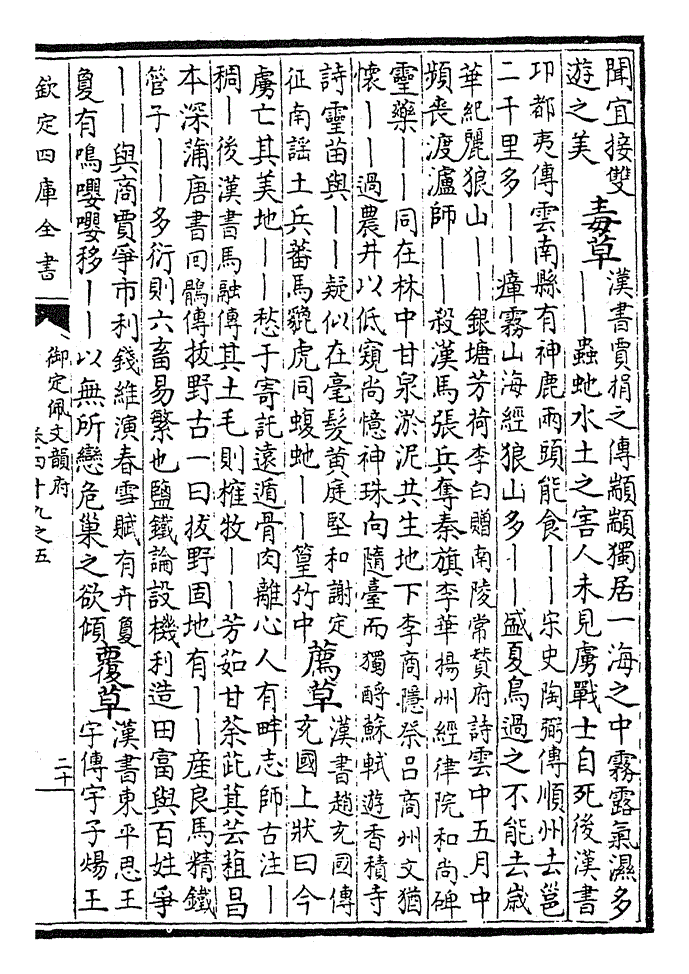 聞宜接雙
遊之美
毒草
漢書賈捐之傳顓顓獨居一海之中霧露氣濕多
——蟲虵水土之害人未見虜戰士自死後漢書
卭都夷傳雲南縣有神鹿兩頭能食——宋史陶弼傳順州去邕
二千里多——瘴霧山海經狼山多——盛夏鳥過之不能去歲
華紀麗狼山——銀塘芳荷李白贈南陵常贊府詩雲中五月中
頻喪渡瀘師——殺漢馬張兵奪秦旗李華揚州經律院和尚碑
靈藥——同在林中甘泉淤泥共生地下李商隱祭呂商州文猶
懷——過農井以低窺尚憶神珠向隨臺而獨酹蘇軾遊香積寺
詩靈苗與——疑似在毫髮黄庭堅和謝定
征南謡土兵蕃馬貔虎同蝮虵——篁竹中
薦草
漢書趙充國傳
充國上狀曰今
虜亡其美地——愁于寄託遠遁骨肉離心人有畔志師古注—
稠—後漢書馬融傳其土毛則榷牧——芳茹甘荼茈萁芸蒩昌
本深蒲唐書回鶻傳拔野古一曰拔野固地有——産良馬精鐵
管子——多衍則六畜易繁也鹽鐵論設機利造田富與百姓爭
——與商賈爭市利錢維演春雪賦有卉夐
夐有鳴嚶嚶移——以無所戀危巢之欲傾
覆草
漢書東平思王
宇傳宇子煬王
欽定四庫全書
御定佩文韻府
卷四十九之五
二十